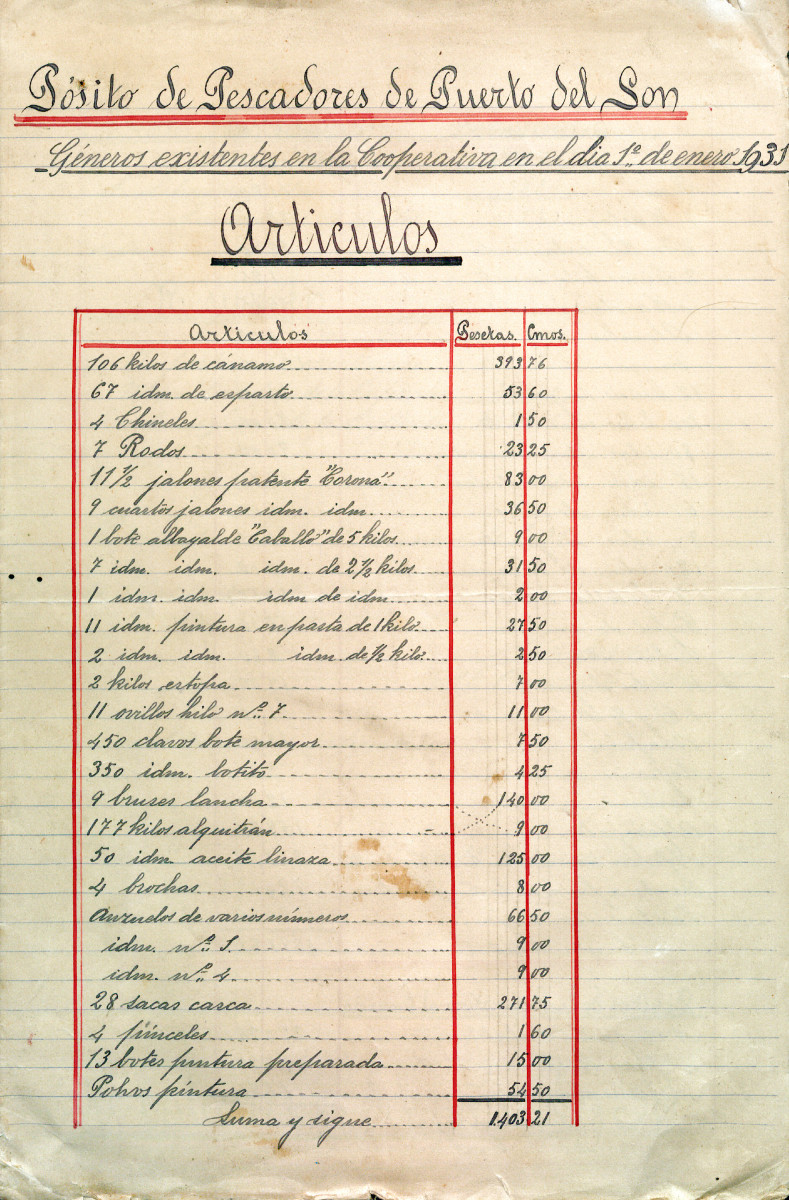 Pósito de Pescadores de Puerto del Son
Géneros existentes en la Cooperativa en el dia 1º de enero 1931
Articulos
Articulos Pesetas. Cmos.
106 kilos de cáñamo 393 76
67 idm. de esparto 53 60
4 Chineles 1 50
7 Rodos 23 25
11 1/2 jalones patente "Corona" 83 00
9 cuartos jalones idm. idm. 36 50
1 bote albayalde "Caballo" de 5 kilos 9 00
7 idm. idm. idm. de 2 1/2 kilos 31 50
1 idm. idm. idm de idm 2 00
11 idm. pintura en pasta de 1 kilo 27 50
2 idm. idm. idm. de 1/2 kilo 2 50
2 kilos estopa 7 00
11 ovillos hilo nº 7 11 00
450 clavos bote mayor 7 50
350 idm. botito 4 25
9 bruses lancha 140 00
177 kilos alquitrán 9 00
50 idm. aceite linaza 125 00
4 brochas 8 00
Anzuelos de varios números 66 50
idm. nº 1 9 00
idm. nº 4 9 00
28 sacas casca 271 75
4 pinceles 1 60
13 botes pintura preparada 15 00
Polvos pintura 54 50
Suma y sigue 1.403 21